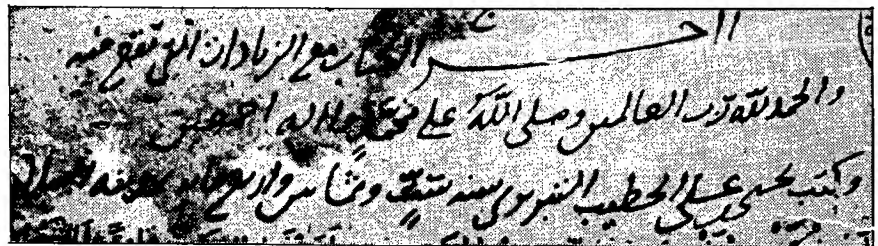 آخـــر الكتاب مع الزيادات التي تقع فيه
والحمد لله رب العالمين وصلى الله على محمد واله اجمعين
وكتب يحيى بن علي الخطيب التبريزي سنه ست وثمانين واربع مايه